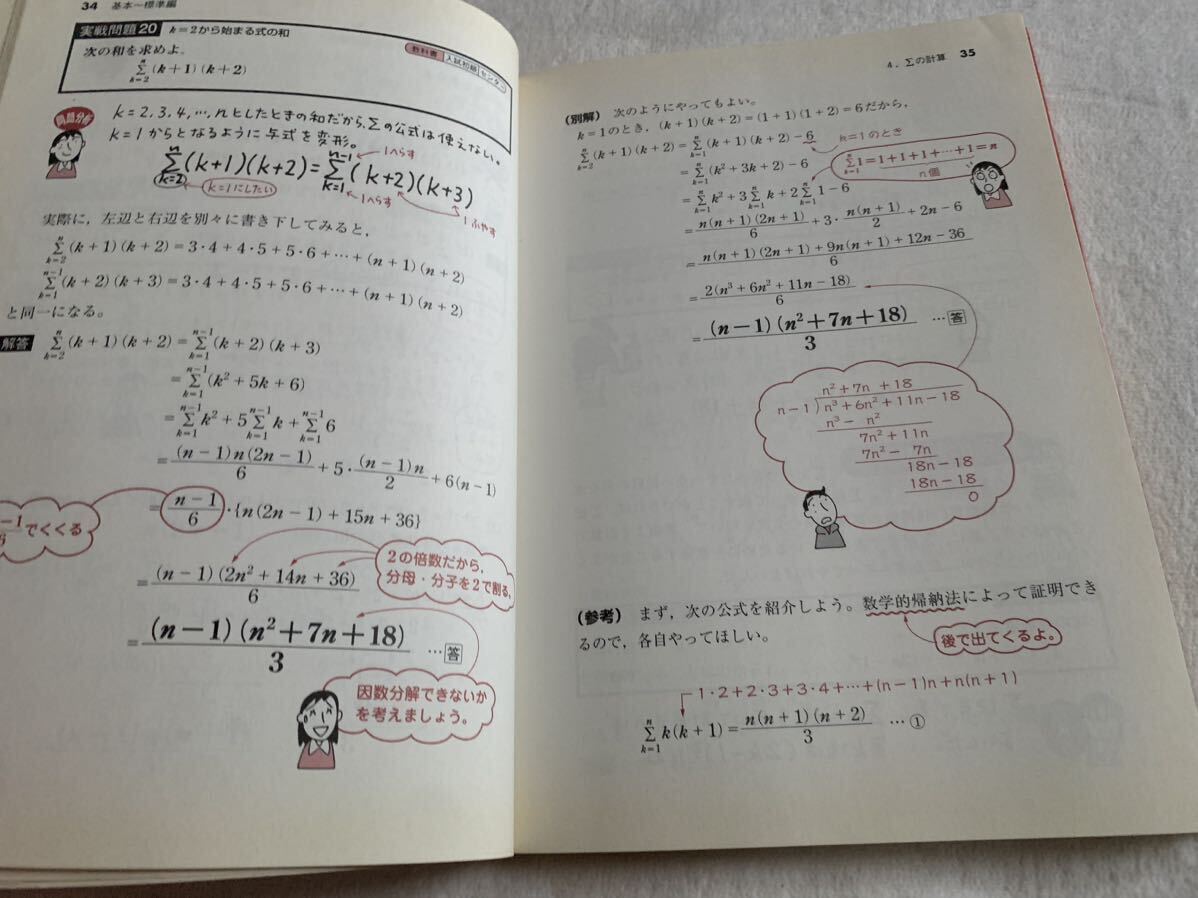 34 基本〜標準編
実戦問題20 k=2から始まる式の和
次の和を求めよ。
教科書 入試初級 センター
n∑k=2 (k+1)(k+2)
問題分析
k=2,3,4,…,nとしたときの和だから,Σの公式は使えない。
k=1からとなるように与式を変形。
n∑k=2 (k+1)(k+2)=n-1∑k=1 (k+2)(k+3)
1へらす
k=1にしたい
1へらす
1ふやす
実際に,左辺と右辺を別々に書き下してみると,
n∑k=2 (k+1)(k+2)=3・4+4・5+5・6+…+(n+1)(n+2)
n-1∑k=1 (k+2)(k+3)=3・4+4・5+5・6+…+(n+1)(n+2)
と同一になる。
解答 n∑k=2 (k+1)(k+2)=n-1∑k=1 (k+2)(k+3)
=n-1∑k=1 (k²+5k+6)
=n-1∑k=1 k²+5 n-1∑k=1 k+n-1∑k=1 6
=(n-1)n(2n-1)/6+5・(n-1)n/2+6(n-1)
=n-1/6・{n(2n-1)+15n+36}
でくくる
=(n-1)(2n²+14n+36)/6
2の倍数だから,
分母・分子を2で割る。
=(n-1)(n²+7n+18)/3 …答
因数分解できないか
を考えましょう。
4. Σの計算 35
(別解) 次のようにやってもよい。
k=1のとき,(k+1)(k+2)=(1+1)(1+2)=6だから,
n∑k=2 (k+1)(k+2)=n∑k=1 (k+1)(k+2)-6
k=1のとき
=n∑k=1 (k²+3k+2)-6
n∑k=1 1=1+1+1+…+1=n
n個
=n∑k=1 k²+3 n∑k=1 k+2 n∑k=1 1-6
=n(n+1)(2n+1)/6+3・n(n+1)/2+2n-6
=n(n+1)(2n+1)+9n(n+1)+12n-36/6
=2(n³+6n²+11n-18)/6
=(n-1)(n²+7n+18)/3 …答
n²+7n+18
n-1)n³+6n²+11n-18
n³-n²
7n²+11n
7n²-7n
18n-18
18n-18
0
(参考) まず,次の公式を紹介しよう。数学的帰納法によって証明でき
るので,各自やってほしい。
後で出てくるよ。
1・2+2・3+3・4+…+(n-1)n+n(n+1)
n∑k=1 k(k+1)=n(n+1)(n+2)/3 …①